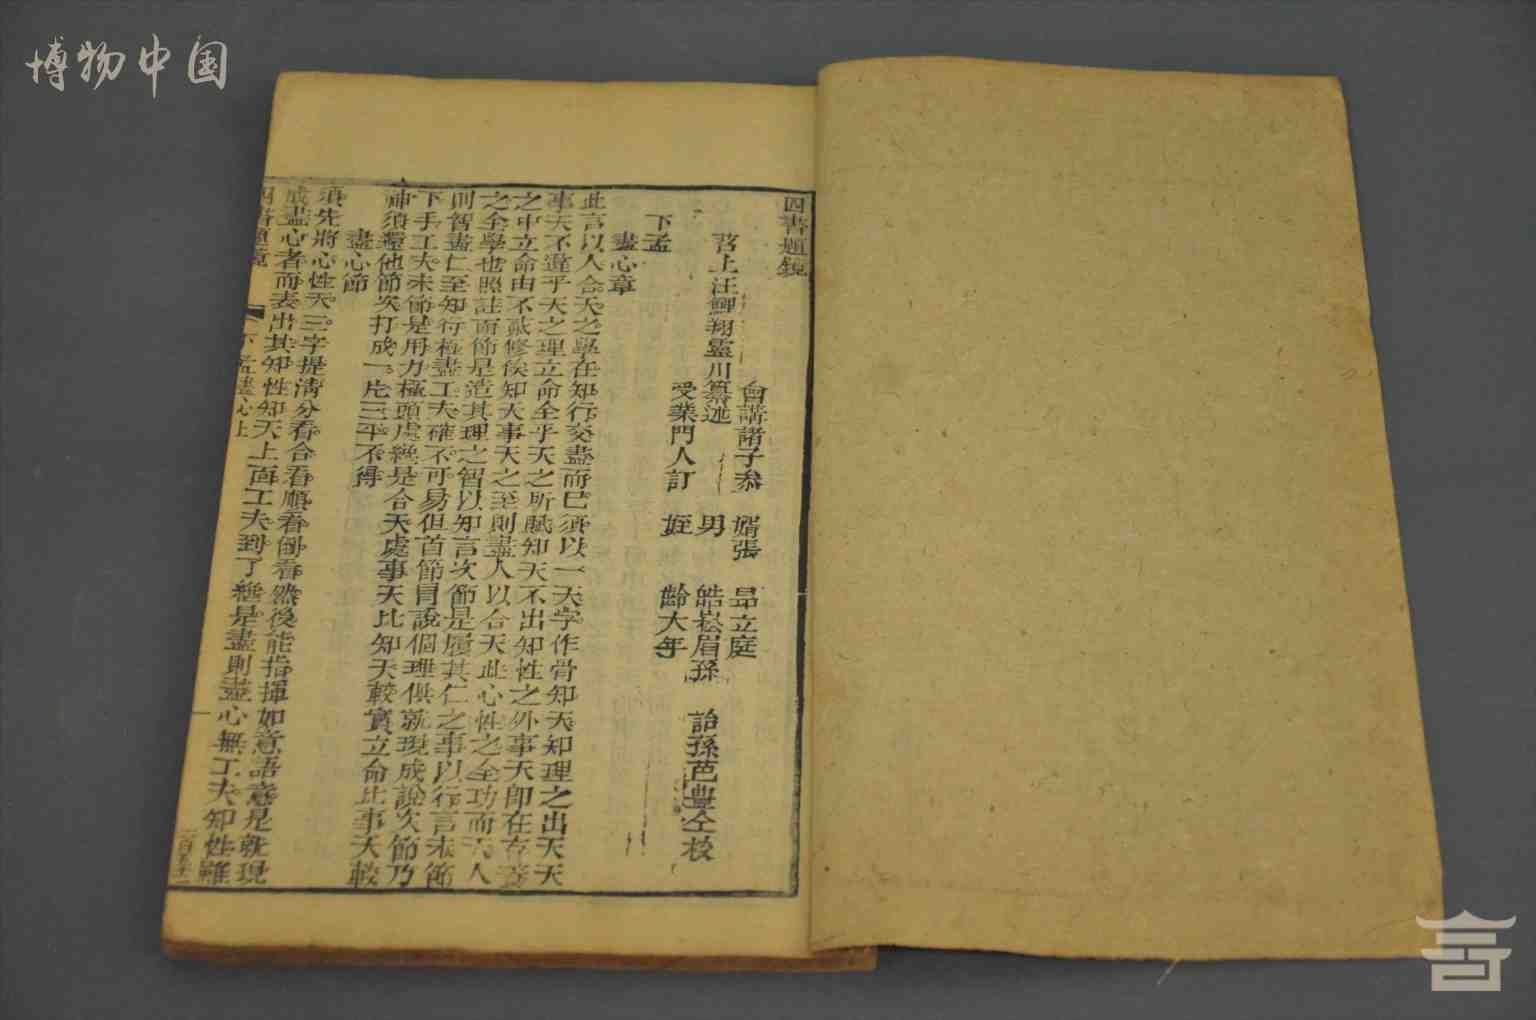 博物中国
四書題鏡
會講諸子叅 婿張 昻立庭
苕上汪鯉翔靈川纂述 男 皓崧眉孫 詒孫芑豊仝校
受業門人訂 姪 齡大年
下孟
盡心章
此言以人合天之學在知行交盡而已須以一天字作骨知天知理之出天天
事天不違乎天之理立命全乎天之所賦知天不出知性之外事天卽在存養
之中立命由不貳修俟知天事天之至則盡人以合天此心性之全功而天人
之全學也照註首節是造其理之智以知言次節是履其仁之事以行言末節
則智盡仁至知行極盡工夫確不可易但首節貝說個理俱就現成說次節乃
下手工夫末節是用力極頭處纔是合天處事天比知天較實立命比事天較
神須還他節次打成一片三平不得
盡心節
須先將心性天三字提清分看合看順看倒看然後能指揮如意語意是就現
成盡心者而表出其知性知天上面工夫到了纔是盡則盡心無工夫知性雖
四書題鏡 下孟盡心上